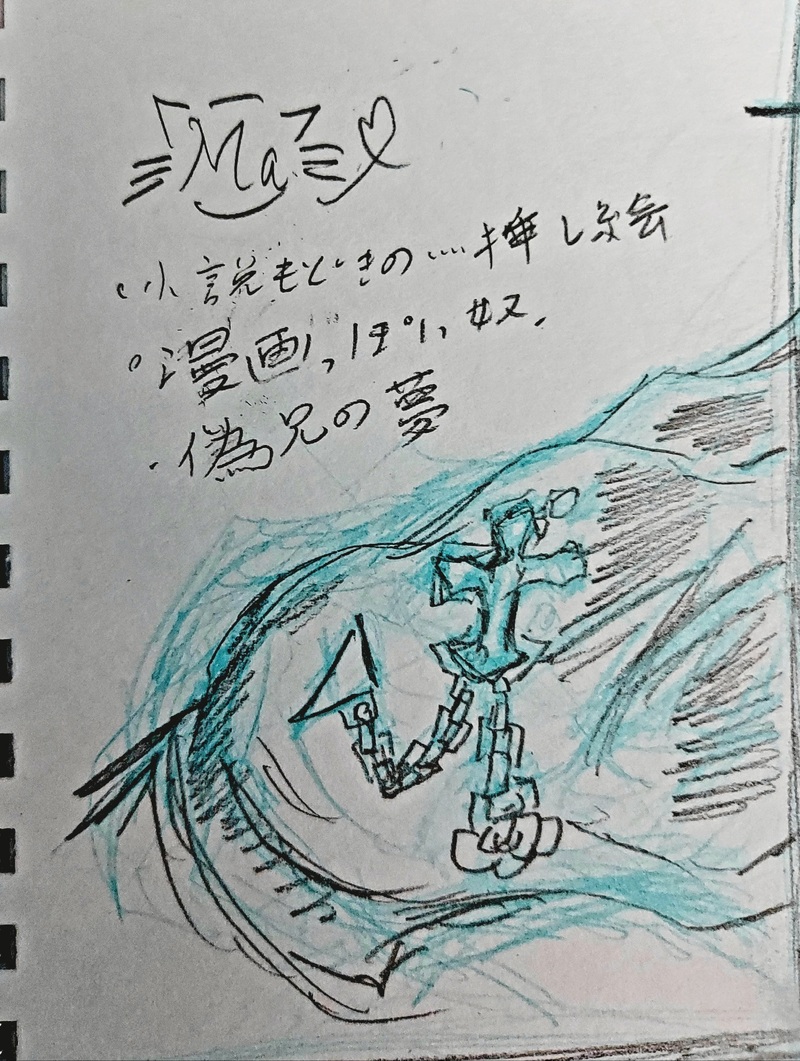 Ma
・小説もどきの…挿し絵
。漫画っぽい奴.
・偽兄の夢